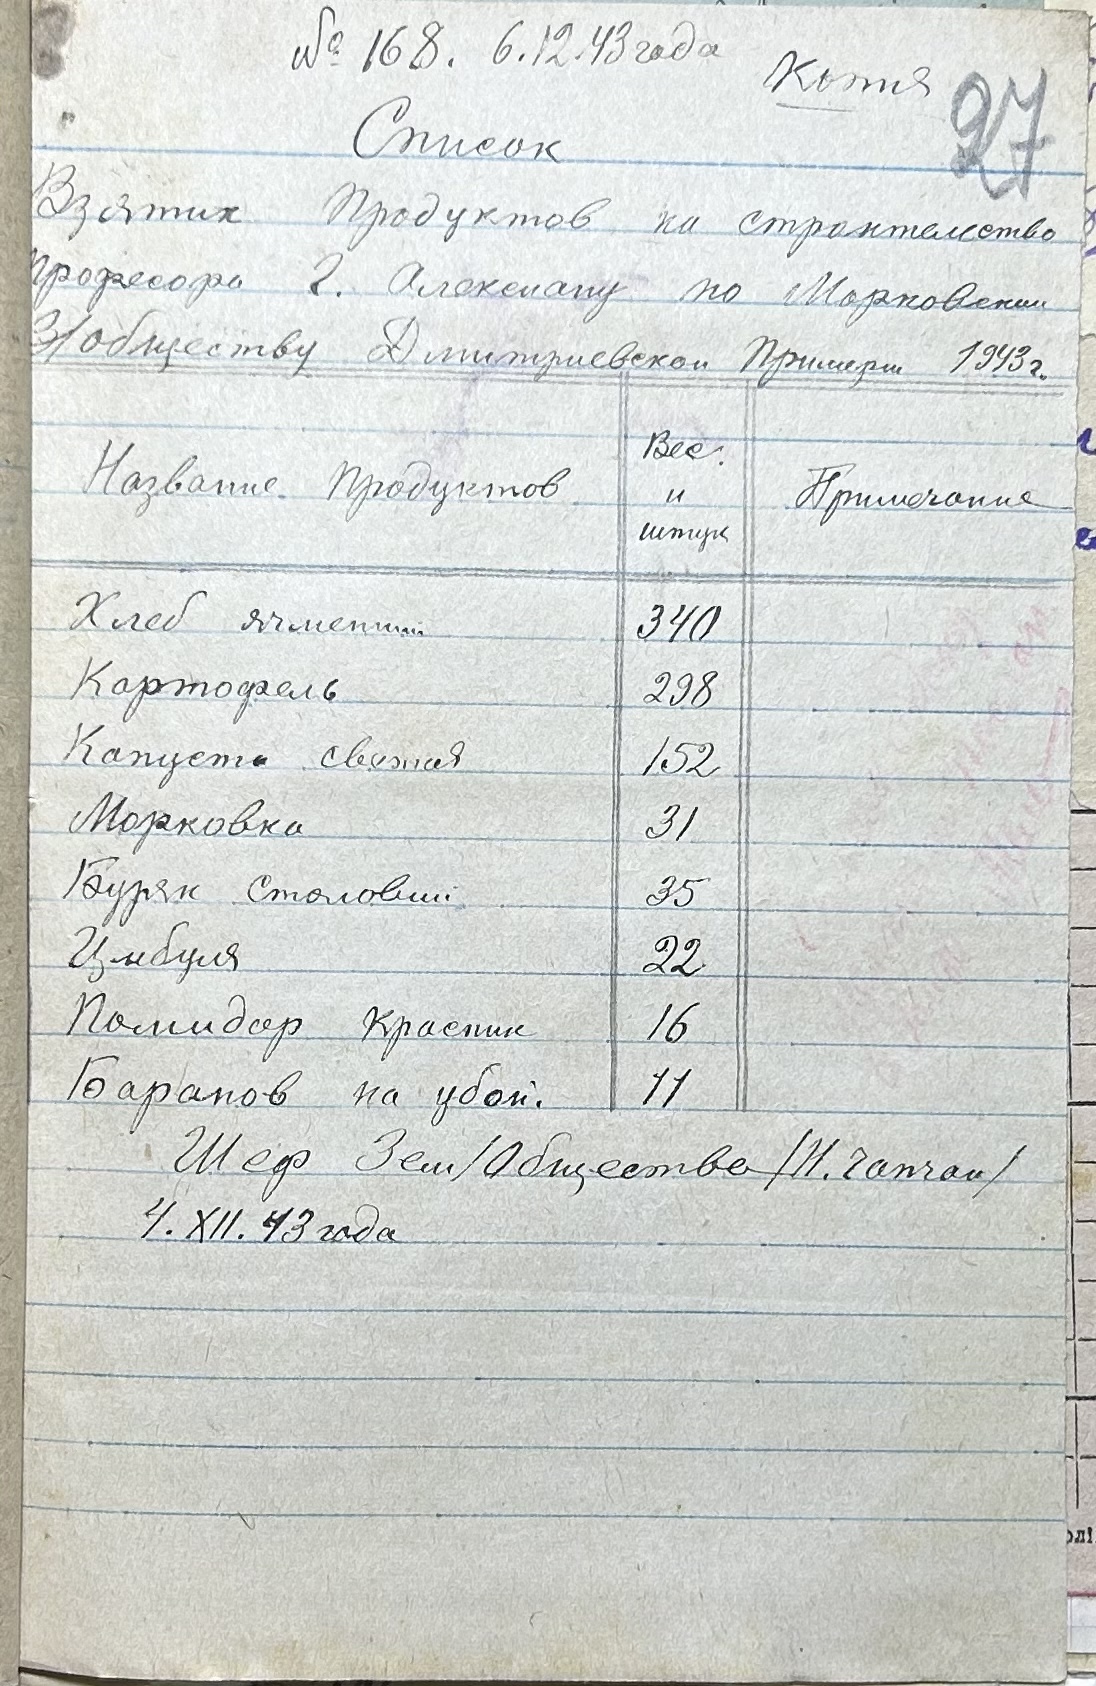 № 168. 6.12.43 года
Копия
27
Список
Взятих Продуктов на строителство
Професора Г. Алексиану по Марковскому
З/обществу Дмитриевской Примери 1943 г.
Название Продуктов Вес. и штук Примечание
Хлеб ячменний 340
Картофель 298
Капуста свежая 152
Морковка 31
Буряк столовий 35
Цыбуля 22
Помидор красних 16
Баранов на убой. 11
Шеф Зем/Общества /И. Чапчай/
4. XII. 43 года